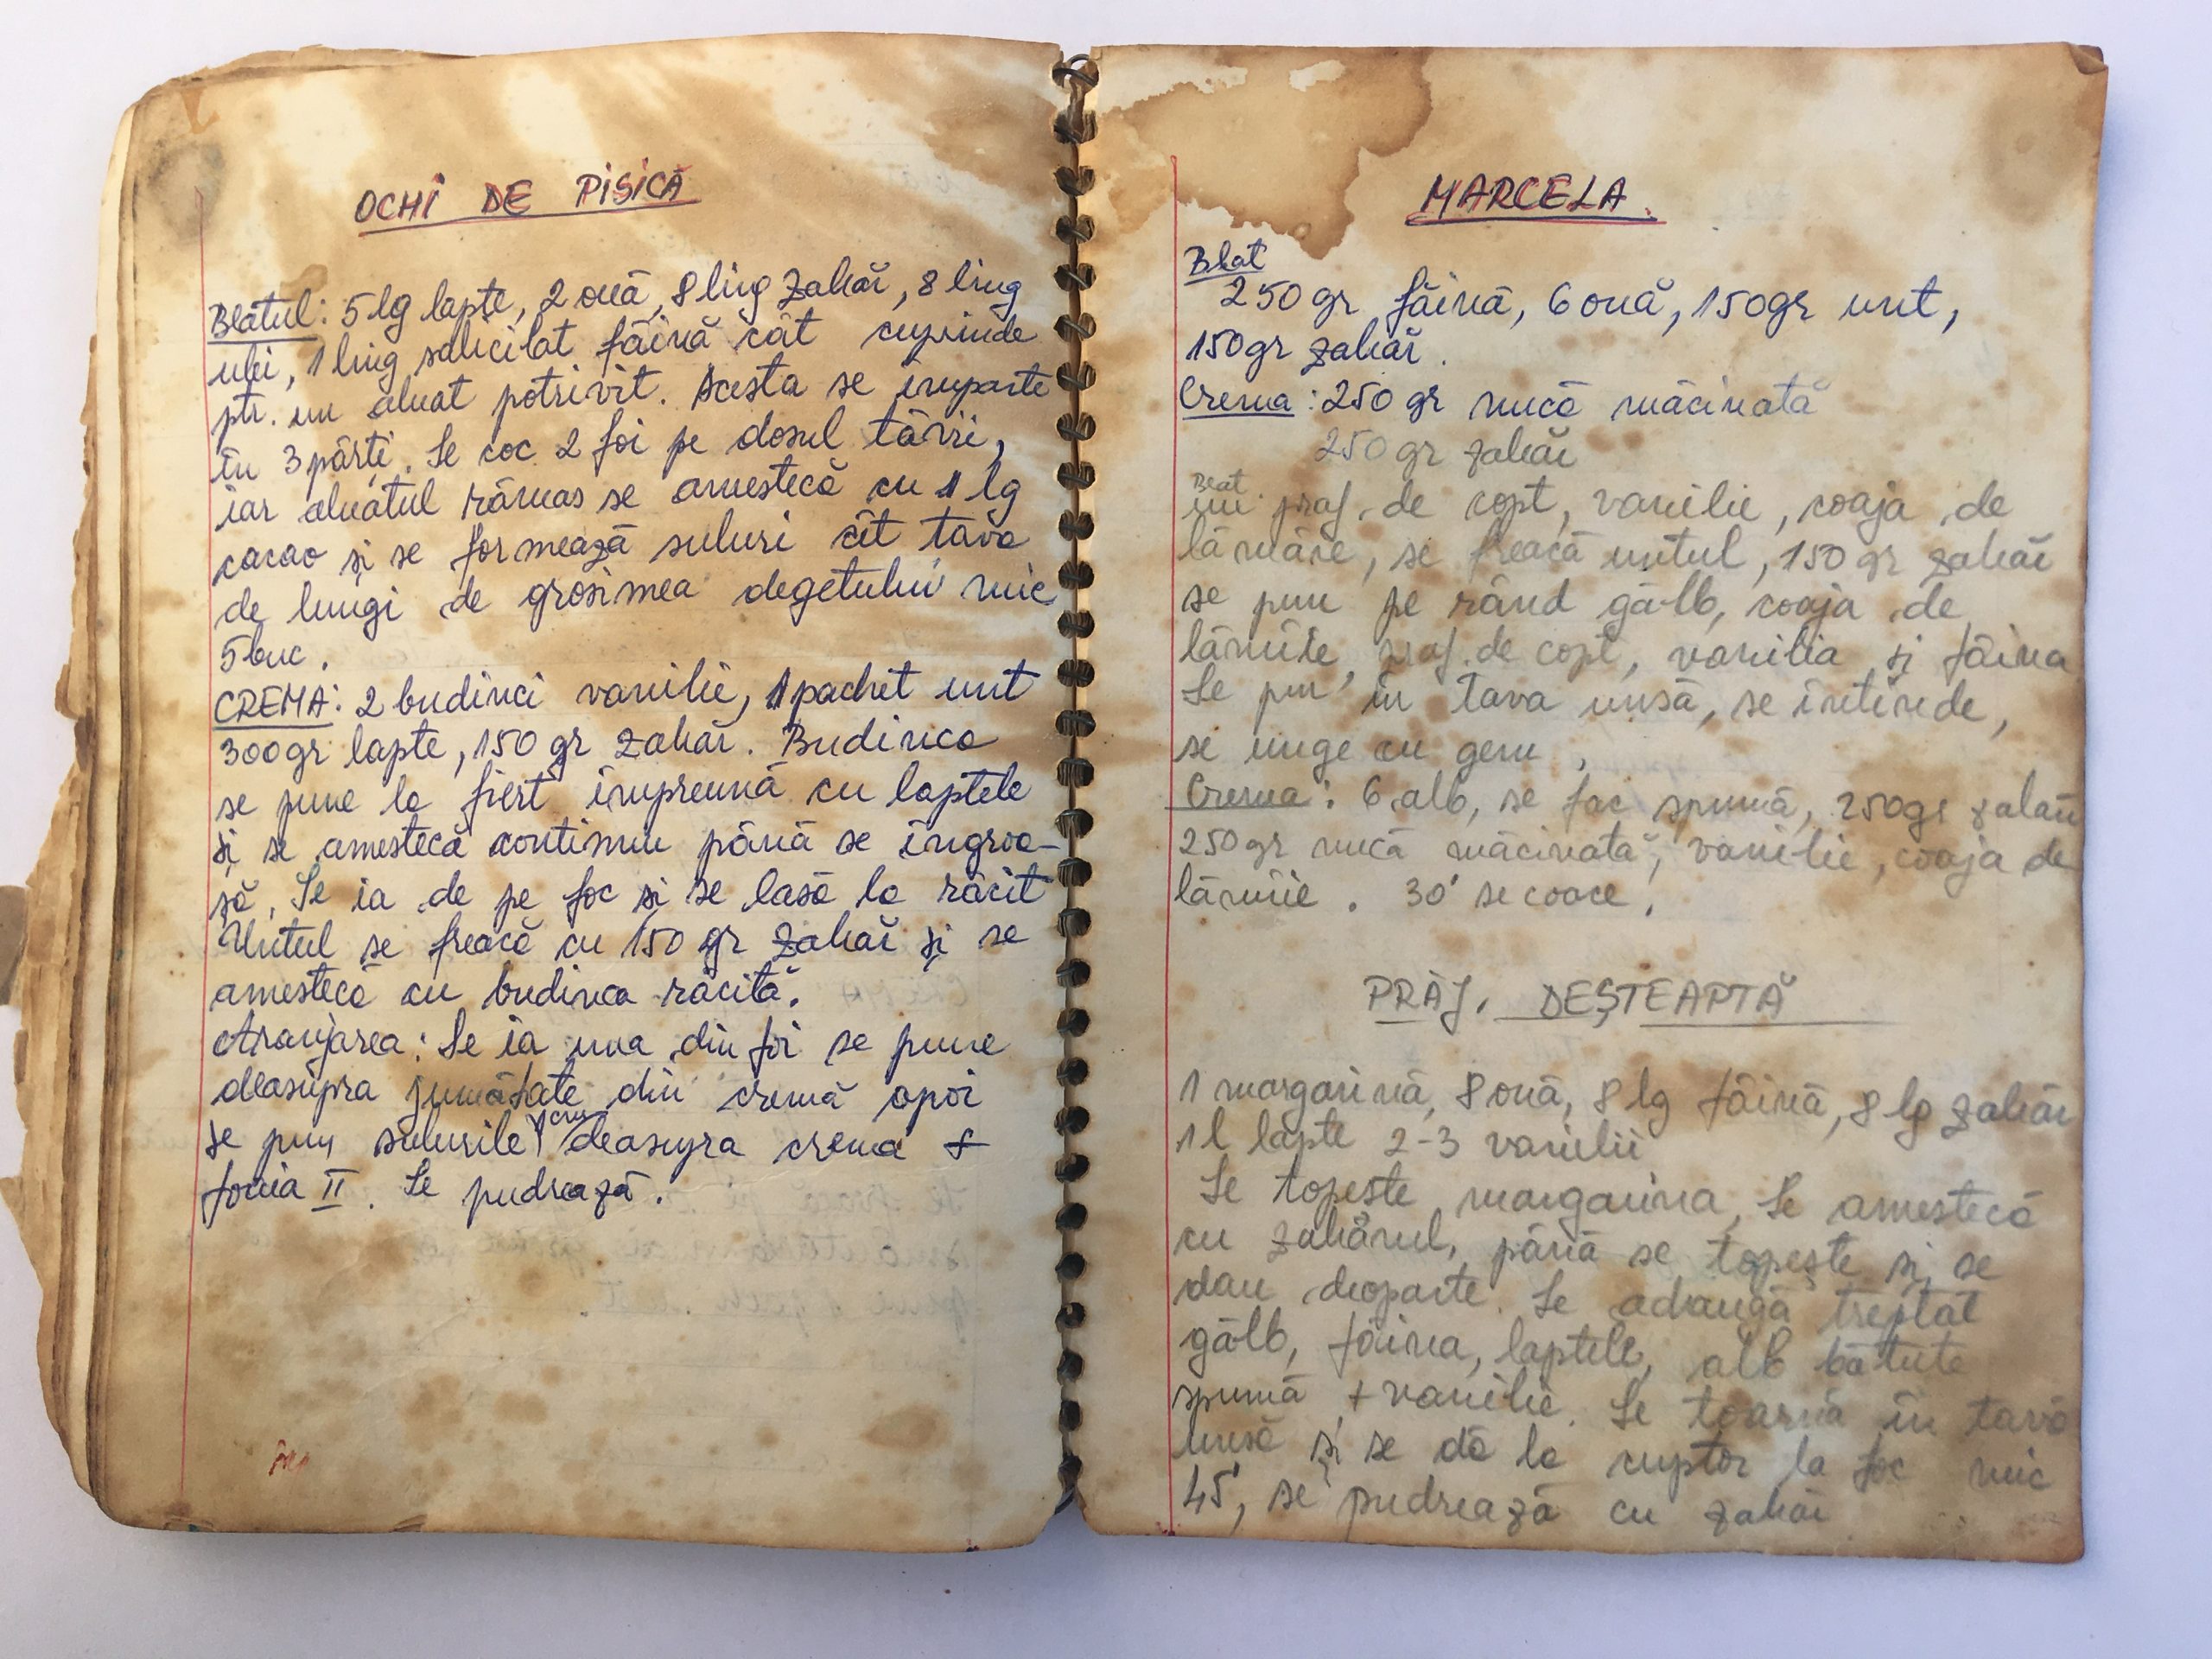 OCHI DE PISICĂ
Blatul: 5 lg lapte, 2 ouă, 8 ling zahăr, 8 ling
ulei, 1 ling salicilat făină cât cuprinde
ptr. un aluat potrivit. Acesta se împarte
în 3 părți. Se coc 2 foi pe dosul tăvii,
iar aluatul rămas se amestecă cu 1 lg
cacao și se formează suluri cît tava
de lungi de grosimea degetului mic
5 buc.
CREMA: 2 budinci vanilie, 1 pachet unt
300 gr lapte, 150 gr zahăr. Budinca
se pune la fiert împreună cu laptele
și se amestecă continuu până se îngroa-
șă. Se ia de pe foc și se lasă la răcit
Untul se freacă cu 150 gr zahăr și se
amestecă cu budinca răcită.
Aranjarea: Se ia una din foi se pune
deasupra jumătate din cremă apoi
se pun sulurile crude deasupra crema +
foaia II. Se pudrează.
MARCELA.
Blat
250 gr făină, 6 ouă, 150 gr unt,
150 gr zahăr.
Crema: 250 gr nucă măcinată
250 gr zahăr
Blat
un praf de copt, vanilie, coaja de
lămâie, se freacă untul, 150 gr zahăr
se pun pe rând gălb, coaja de
lămîie, praf. de copt, vanilia și făina
Se pun în tava unsă, se întinde,
se unge cu gem,
Crema: 6 alb, se fac spumă, 250 gr zahăr
250 gr nucă măcinată, vanilie, coaja de
lămîie. 30' se coace.
PRĂJ. DEȘTEAPTĂ
1 margarină, 8 ouă, 8 lg făină, 8 lg zahăr
1 l lapte 2-3 vanilii
Se topește margarina, se amestecă
cu zahărul, până se topește și se
dau deoparte. Se adaugă treptat
gălb, făina, laptele, alb bătute
spumă + vanilie. Se toarnă în tavă
unsă și se dă la cuptor la foc mic
45', se pudrează cu zahăr